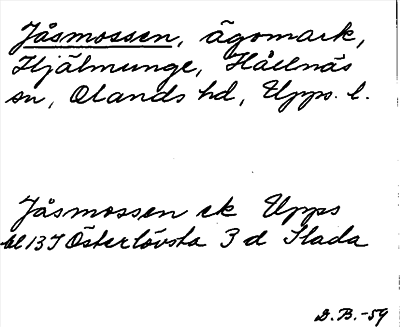 Jåsmossen, ägomark,
Hjälmunge, Hållnäs
sn, Olands hd, Upps. l.
Jåsmossen ek Upps
bl 13 I Österlövsta 3 d Slada
D.B.-59